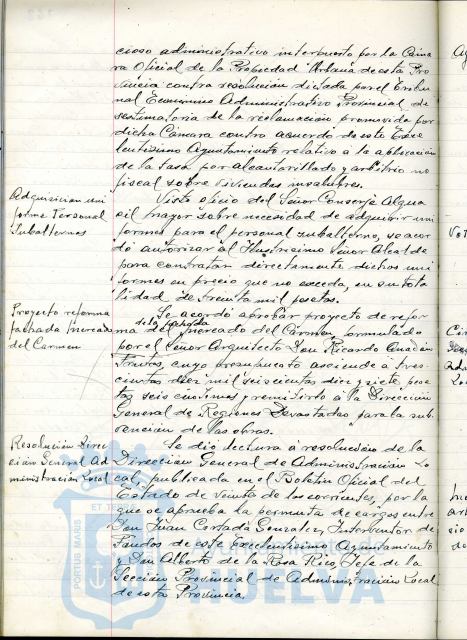 cioso administrativo interpuesto por la Cáma
ra Oficial de la Propiedad Urbana de esta Pro
vincia contra resolución dictada por el Tribu
nal Económico Administrativo Provincial de
sestimatoria de la reclamación promovida por
dicha Cámara contra acuerdo de este Exce
lentísimo Ayuntamiento relativo a la aplicación
de la tasa por alcantarillado y arbitrio no
fiscal sobre viviendas insalubres.
Adquisición uni
forme Personal
Subalternos
Visto oficio del Señor Conserje Algua
cil mayor sobre necesidad de adquirir uni
formes para el personal subalterno, se acor
dó autorizar al Ilustrísimo Señor Alcalde
para contratar directamente dichos uni
formes en precio que no exceda, en su tota
lidad de treinta mil pesetas.
Proyecto reforma
fachada Mercado
del Carmen
Se acordó aprobar proyecto de refor
ma de la fachada
del Mercado del Carmen, formulado
por el Señor Arquitecto Don Ricardo Anadón
Frutos, cuyo presupuesto asciende a tres
cientas diez mil seiscientas diez y siete pese
tas seis céntimos y remitirlo a la Dirección
General de Regiones Devastadas para la sub
vención de las obras.
Resolución Direc
ción General Ad
ministración Local
Se dió lectura a resolución de la
Dirección General de Administración Lo
cal, publicada en el Boletín Oficial del
Estado de veinte de los corrientes, por la
que se aprueba la permuta de cargos entre
Don Juan Cortada González, Interventor de
Fondos de este Excelentísimo Ayuntamiento
y Don Alberto de la Rosa Rico, Jefe de la
Sección Provincial de Administración Local
de esta Provincia.
PORTUS MARIS
HUELVA